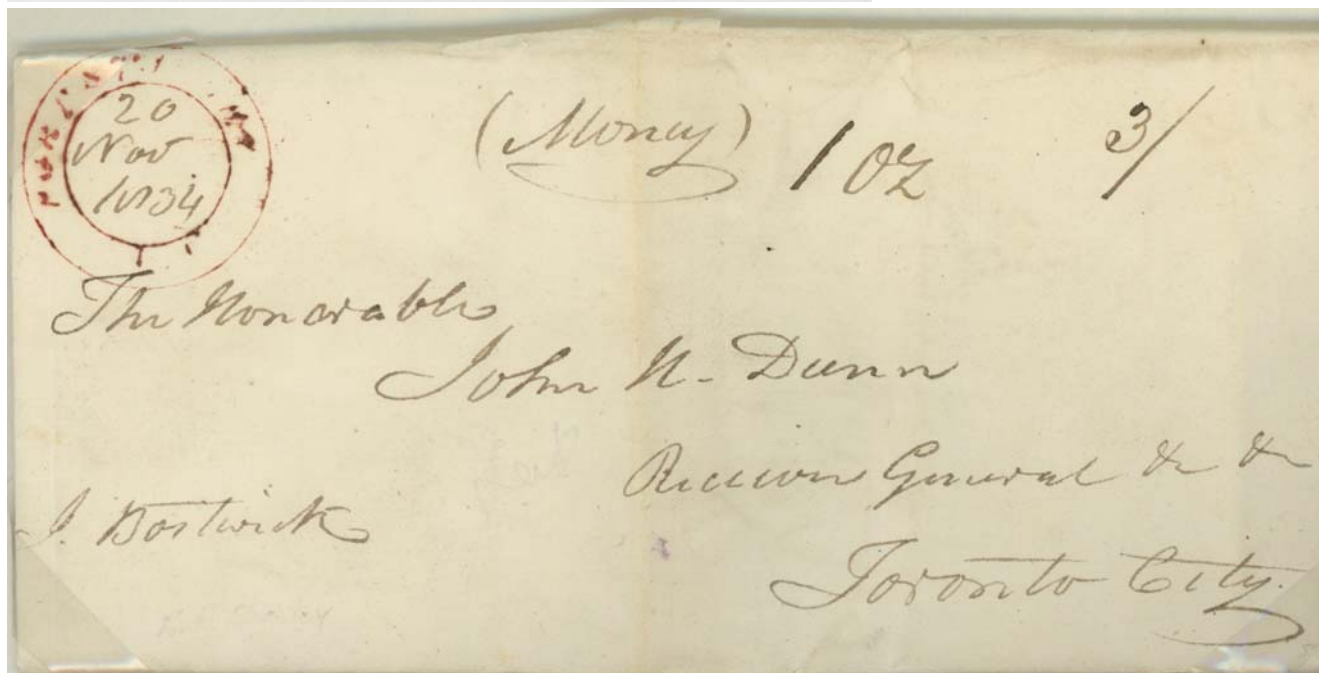 20
Nov
1834
(Money) 1 oz 3/
The Honorable
John H. Dunn
Receiver General &c &c
J. Bostwick
Toronto City.